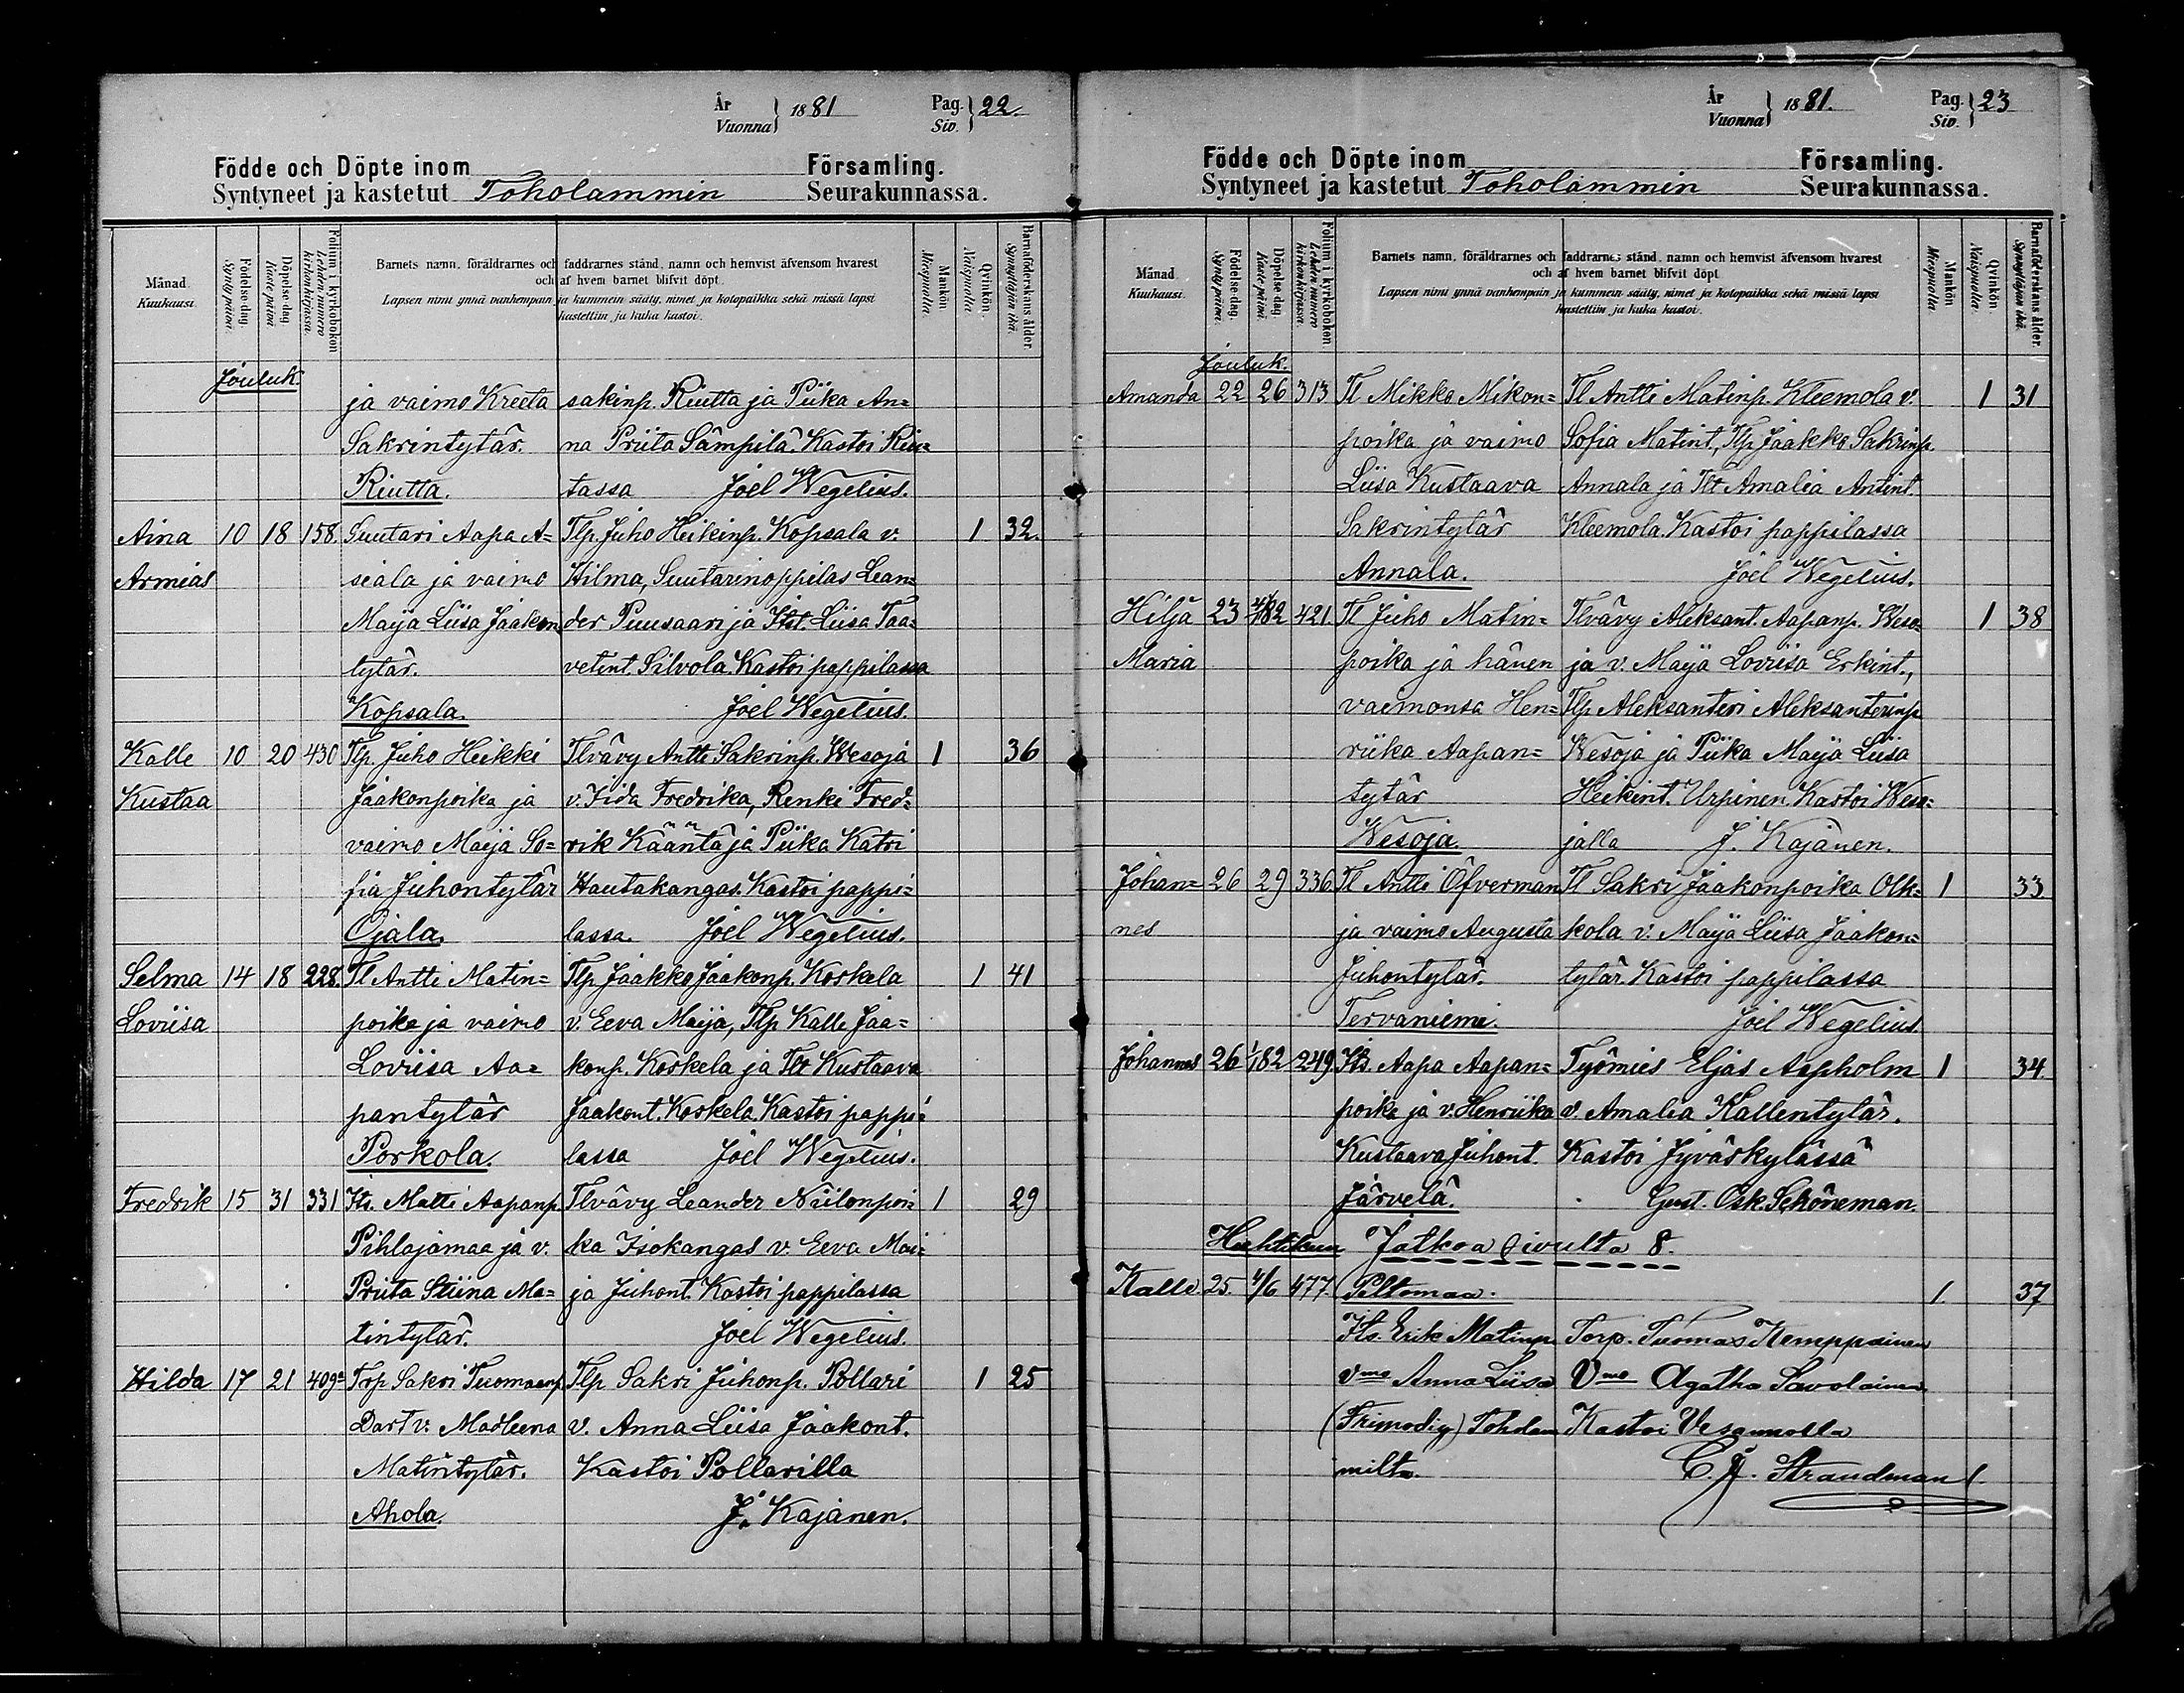 År
Vuonna } 1881
Pag.
Siv. } 22.
Födde och Döpte inom Församling.
Syntyneet ja kastetut Toholammin Seurakunnassa.
Månad Kuukausi.
Födelse-dag. Synty-päivä.
Döpelse-dag Kaste-päivä
Folium i kyrkoboken Lehden numero kirkonkirjassa.
Barnets namn, föräldrarnes och faddrarnes stånd, namn och hemvist äfvensom hvarest
och af hvem barnet blifvit döpt.
Lapsen nimi ynnä vanhempain ja kummein sääty, nimet ja kotopaikka sekä missä lapsi
kastettiin ja kuka kastoi.
Mankön Miespuolta.
Qvinkön. Naispuolta.
Barnaföderskans ålder. Synnyttäjän ikä.
Jouluk.
ja vaimo Kreeta sakinp. Riutta ja Piika An=
Sakrintytär. na Priita Sämpilä. Kastoi Riu=
Riutta. tassa Joel Wegelius.
Aina 10 18 158. Suutari Aapa A= Tlp. Juho Heikinp. Kopsala v. 1 32.
Armias siala ja vaimo Hilma, Suutarinoppilas Lean=
Maija Liisa Jaakon= der Puusaari ja Itst. Liisa Taa=
tytär. vetint. Silvola. Kastoi pappilassa
Kopsala. Joel Wegelius.
Kalle 10 20 430 Tlp. Juho Heikki Tlvävy Antti Sakrinp. Wesoja 1 36
Kustaa Jaakonpoika ja v. Iida Fredrika, Renki Fred=
vaimo Maija So= rik Kääntä ja Piika Katri
fia Juhontytär Hautakangas. Kastoi pappi=
Ojala. lassa. Joel Wegelius.
Selma 14 18 228. Tl Antti Matin= Tlp Jaakko Jaakonp. Koskela 1 41
Loviisa poika ja vaimo v. Eeva Maija, Tlp Kalle Jaa=
Loviisa Aa= konp. Koskela ja Tlt Kustaava
pantytär Jaakont. Koskela. Kastoi pappi=
Porkola. lassa Joel Wegelius.
Fredrik 15 31 331 Its. Matti Aapanp. Tlvävy Leander Niilonpoi= 1 29
Pihlajamaa ja v. ka Isokangas v. Eeva Mai=
Priita Stiina Ma= ja Juhont. Kastoi pappilassa
tintytär. Joel Wegelius.
Hilda 17 21 409a Trp Sakri Tuomaanp. Tlp Sakri Juhonp. Pollari 1 25
Dart v. Madleena v. Anna Liisa Jaakont.
Matintytär. Kastoi Pollarilla
Ahola. J. Kajanen.
År
Vuonna } 1881.
Pag.
Siv. } 23
Födde och Döpte inom Församling.
Syntyneet ja kastetut Toholammin Seurakunnassa.
Månad Kuukausi.
Födelse-dag. Synty-päivä.
Döpelse-dag Kaste-päivä.
Folium i kyrkoboken Lehden numero kirkonkirjassa.
Barnets namn, föräldrarnes och faddrarnes stånd, namn och hemvist äfvensom hvarest
och af hvem barnet blifvit döpt.
Lapsen nimi ynnä vanhempain ja kummein sääty, nimet ja kotopaikka sekä missä lapsi
kastettiin ja kuka kastoi.
Mankön Miespuolta.
Qvinkön. Naispuolta.
Barnaföderskans ålder. Synnyttäjän ikä.
Jouluk.
Amanda 22 26 313 Tl Mikko Mikon= Tl Antti Matinp. Kleemola v. 1 31
poika ja vaimo Sofia Matint., Tlp Jaakko Sakrinp.
Liisa Kustaava Annala ja Tlt Amalia Antint.
Sakrintytär Kleemola. Kastoi pappilassa
Annala. Joel Wegelius.
Hilja 23 4/1 82 421 Tl Juho Matin= Tlvävy Aleksant. Aapanp. Weso= 1 38
Maria poika ja hänen ja v. Maija Loviisa Erkint.,
vaimonsa Hen= Tlp Aleksanteri Aleksanterinp
riika Aapan= Wesoja ja Piika Maija Liisa
tytär Heikint. Urpinen. Kastoi Weso=
Wesoja. jalla J. Kajanen.
Johan= 26 29 336 Tl Antti Öfverman Tl Sakri Jaakonpoika Olk= 1 33.
nes ja vaimo Augusta kola v. Maija Liisa Jaakon=
Juhontytär. tytär. Kastoi pappilassa
Tervaniemi. Joel Wegelius.
Johannes 26 1/1 82 249 Its. Aapa Aapan= Työmies Eljas Aspholm 1 34.
poika ja v. Henriika v. Amalia Kallentytär.
Kustaava Juhont. Kastoi Jyväskylässä
Järvelä. Gust. Osk. Schöneman.
Huhtikuu Jatkoa sivulta 8.
Kalle 25. 4/6 477. Peltomaa. 1 37
Its. Erik Matinp. Torp. Tuomas Kemppainen
Vmo Anna Liisa Vmo Agatha Savolainen
(Frimodig) Toholam Kastoi Vesannolla
milta. C. J. Strandman